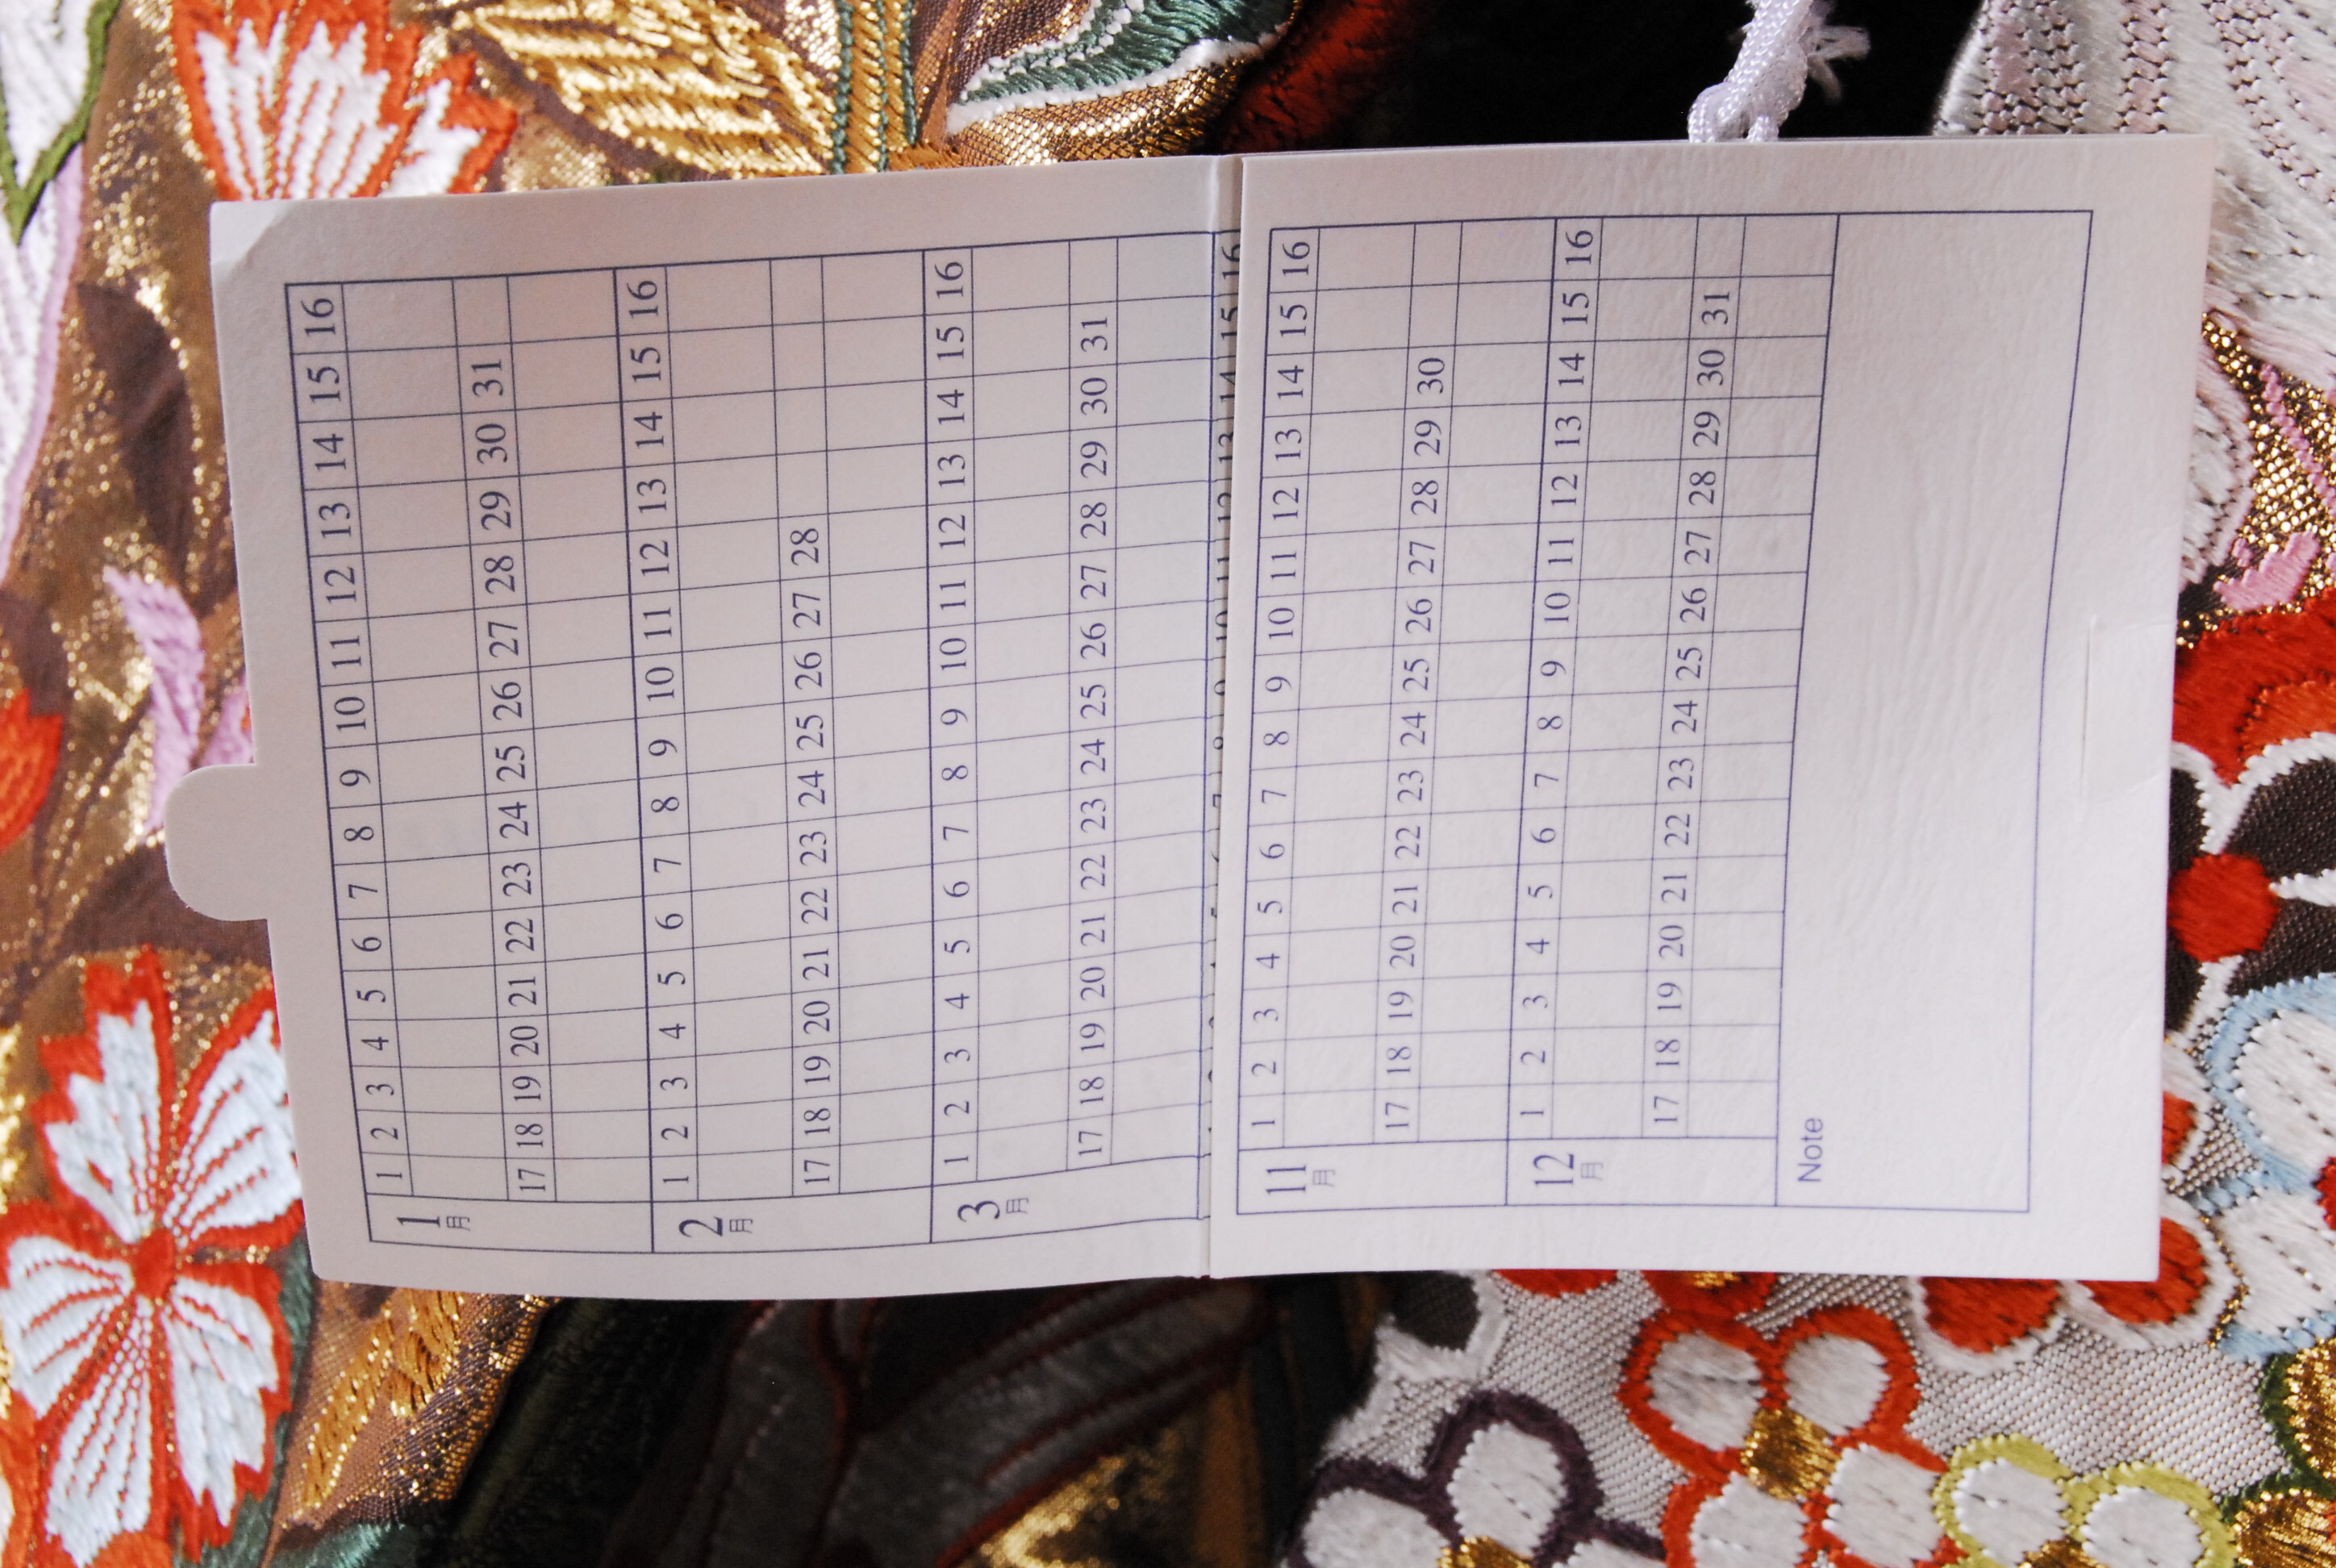 1月
1 2 3 4 5 6 7 8 9 10 11 12 13 14 15 16
17 18 19 20 21 22 23 24 25 26 27 28 29 30 31
2月
1 2 3 4 5 6 7 8 9 10 11 12 13 14 15 16
17 18 19 20 21 22 23 24 25 26 27 28
3月
1 2 3 4 5 6 7 8 9 10 11 12 13 14 15 16
17 18 19 20 21 22 23 24 25 26 27 28 29 30 31
11月
1 2 3 4 5 6 7 8 9 10 11 12 13 14 15 16
17 18 19 20 21 22 23 24 25 26 27 28 29 30
12月
1 2 3 4 5 6 7 8 9 10 11 12 13 14 15 16
17 18 19 20 21 22 23 24 25 26 27 28 29 30 31
Note